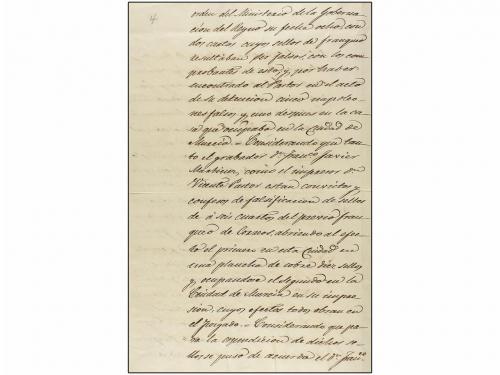 4
orden del Ministerio de la Goberna-
cion del Reyno su fecha ocho, con
dos cartas cuyos sellos de franqueo
resultaban ser falsos, con los com-
probantes de esto, y, por haber
encontrado al Pastor en el acto
de su detencion cinco napoleo-
nes falsos y, uno despues en la ca-
sa que ocupaba en la Ciudad de
Murcia = Considerando que tan-
to el grabador Dn. Franco. Javier
Martinez, como el impresor Dn.
Vicente Pastor estan convictos y
confesos de falsificacion de sellos
de á seis cuartos del previo fran-
queo de Correos, abriendo al efec-
to el primero en esta Ciudad en
una plancha de cobre diez sellos
y, ocupandose el segundo en la
Ciudad de Murcia en su impre-
sion, cuyos efectos todos obran en
el Juzgado. = Considerando que pa-
ra la espendicion de dichos se-
llos se puso de acuerdo el Dn. Franco.